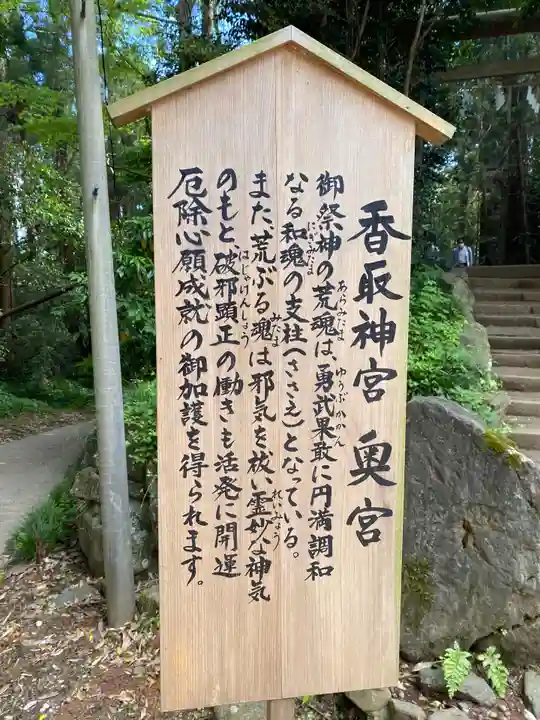 香取神宮 奥宮
御祭神の荒魂は、勇武果敢に円満調和
なる和魂の支柱(ささえ)となっている。
また、荒ぶる魂は邪気を祓い霊妙な神気
のもと、破邪顕正の働きも活発に開運
厄除心願成就の御加護を得られます。
あらみたま
ゆうぶかかん
にぎみたま
みたま
れいみょう
はじゃけんしょう